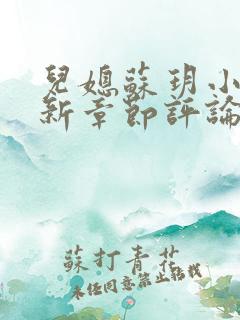 兒媳蘇玥小
新章節評論
蘇打青花
未經同意禁止轉載